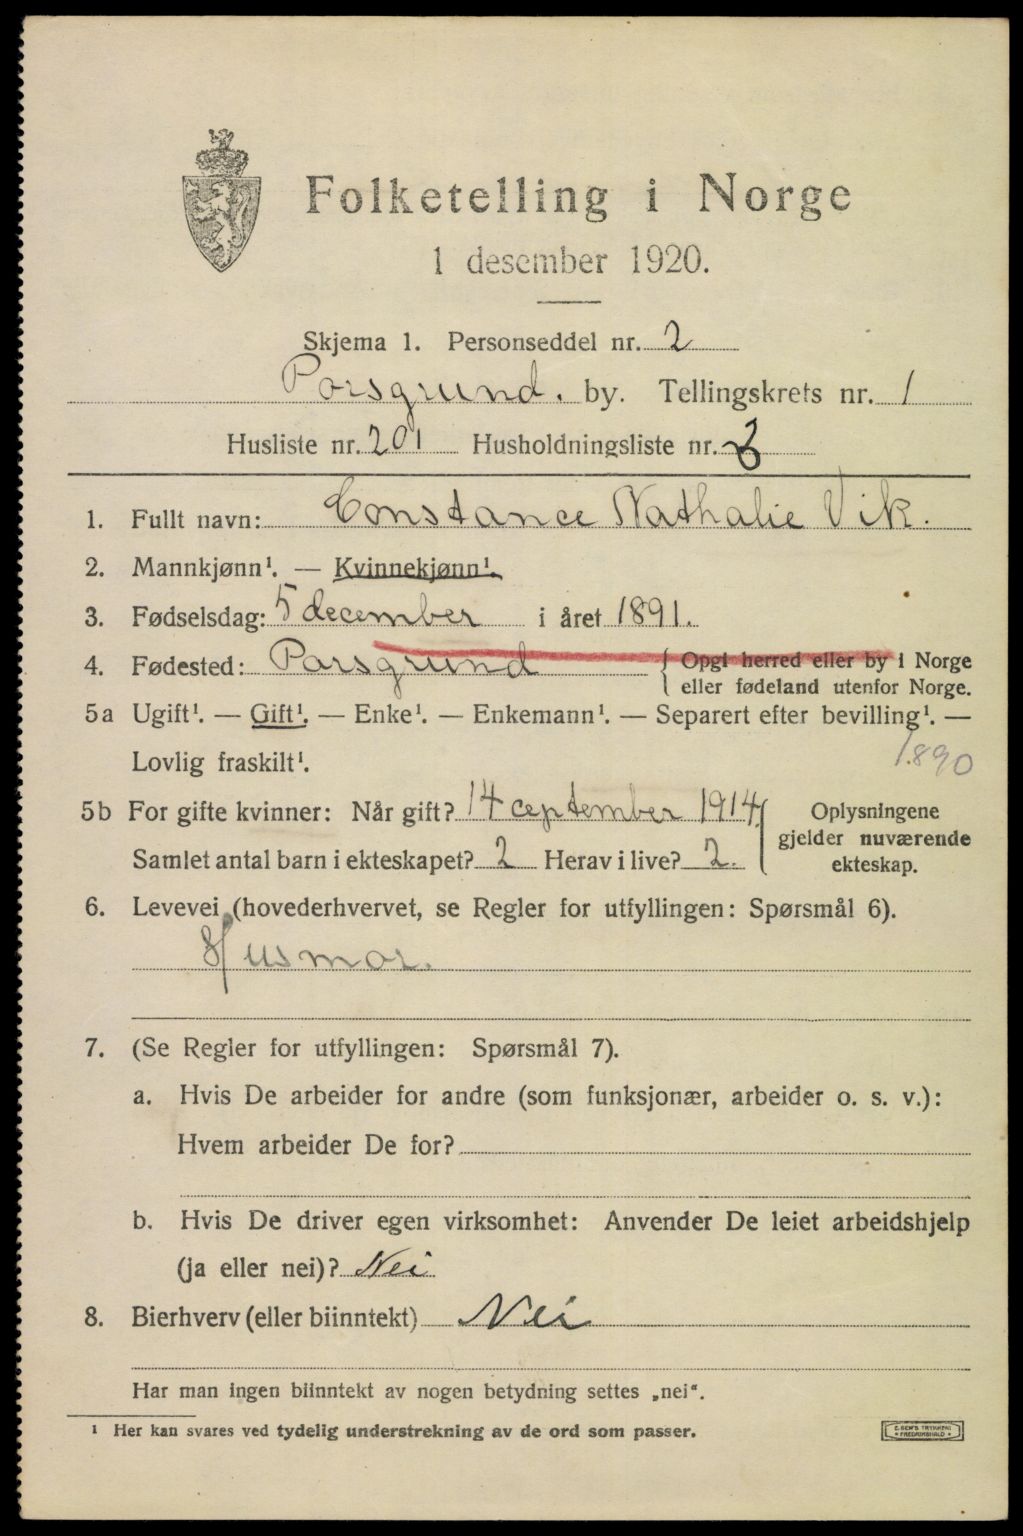 Folketelling i Norge
1 desember 1920.
Skjema 1. Personseddel nr. 2
Porsgrund. by. Tellingskrets nr. 1
Husliste nr. 201 Husholdningsliste nr.
1. Fullt navn: Constance Nathalie Vik.
2. Mannkjønn¹. — Kvinnekjønn¹.
3. Fødselsdag: 5 december i året 1891.
4. Fødested: Porsgrund { Opgi herred eller by i Norge
eller fødeland utenfor Norge.
5a Ugift¹. — Gift¹. — Enke¹. — Enkemann¹. — Separert efter bevilling¹. —
Lovlig fraskilt¹.
1890
5b For gifte kvinner: Når gift? 14 ceptember 1914. { Oplysningene
gjelder nuværende
Samlet antal barn i ekteskapet? 2 Herav i live? 2. ekteskap.
6. Levevei (hovederhvervet, se Regler for utfyllingen: Spørsmål 6).
Husmor.
7. (Se Regler for utfyllingen: Spørsmål 7).
a. Hvis De arbeider for andre (som funksjonær, arbeider o. s. v.):
Hvem arbeider De for?
b. Hvis De driver egen virksomhet: Anvender De leiet arbeidshjelp
(ja eller nei)? Nei
8. Bierhverv (eller biinntekt) Nei
Har man ingen biinntekt av nogen betydning settes „nei“.
¹ Her kan svares ved tydelig understrekning av de ord som passer.
FREDRIKSHALD